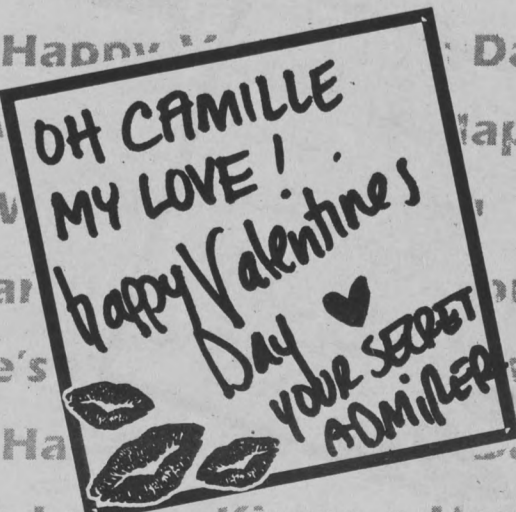 Happy
OH CAMILLE
MY LOVE!
happy Valentines
Day ♥
YOUR SECRET
ADMIRER